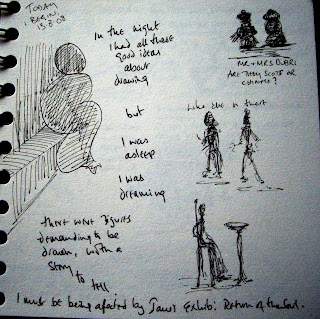 TODAY
I BEGIN
15.8.08
In the night
I had all these
good ideas
about
drawing
but
I was
asleep
I was
dreaming
there were figures
demanding to be
drawn, with a
story
to tell
MR + MRS
ARE THEY SCOTS OR
CHINESE?
Like
I must be being affected by Jane's Exhib: Return of the Soul.